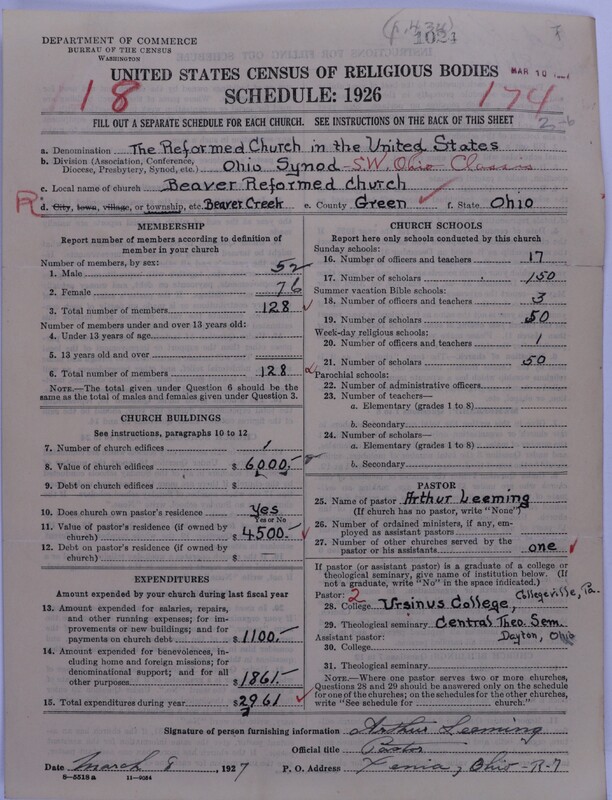 (p.434)
1024
DEPARTMENT OF COMMERCE
BUREAU OF THE CENSUS
WASHINGTON
UNITED STATES CENSUS OF RELIGIOUS BODIES
MAR 10
SCHEDULE: 1926
118
174
FILL OUT A SEPARATE SCHEDULE FOR EACH CHURCH. SEE INSTRUCTIONS ON THE BACK OF THIS SHEET
a. Denomination The Reformed Church in the United States
b. Division (Association, Conference, Diocese, Presbytery, Synod, etc.) Ohio Synod - S.W. Ohio Classis
c. Local name of church Beaver Reformed Church
R d. City, town, village, or township, etc. Beaver Creek e. County Green f. State Ohio
MEMBERSHIP
Report number of members according to definition of
member in your church
Number of members, by sex:
1. Male 52
2. Female 76
3. Total number of members 128
Number of members under and over 13 years old:
4. Under 13 years of age
5. 13 years old and over
6. Total number of members 128
NOTE.—The total given under Question 6 should be
same as the total of males and females given under Question 3.
CHURCH BUILDINGS
See instructions, paragraphs 10 to 12
7. Number of church edifices 1
8. Value of church edifices $ 6000.-
9. Debt on church edifices $
10. Does church own pastor's residence Yes
Yes or No
11. Value of pastor's residence (if owned by
church) $ 4500.-
12. Debt on pastor's residence (if owned by
church) $
EXPENDITURES
Amount expended by your church during last fiscal year
13. Amount expended for salaries, repairs,
and other running expenses; for im-
provements or new buildings; and for
payments on church debt $ 1100.-
14. Amount expended for benevolences, in-
cluding home and foreign missions; for
denominational support; and for all
other purposes $ 1861.-
15. Total expenditures during year $ 2961
CHURCH SCHOOLS
Report here only schools conducted by this church
Sunday schools:
16. Number of officers and teachers 17
17. Number of scholars 150
Summer vacation Bible schools:
18. Number of officers and teachers 3
19. Number of scholars 50
Week-day religious schools:
20. Number of officers and teachers 1
21. Number of scholars 50
Parochial schools:
22. Number of administrative officers
23. Number of teachers—
a. Elementary (grades 1 to 8)
b. Secondary
24. Number of scholars—
a. Elementary (grades 1 to 8)
b. Secondary
PASTOR
25. Name of pastor Arthur Leeming
(If church has no pastor, write "None")
26. Number of ordained ministers, if any, em-
ployed as assistant pastors
27. Number of other churches served by the
pastor or his assistants one
If pastor (or assistant pastor) is a graduate of a college or
theological seminary, give name of institution below. (If
not a graduate, write "No" in the space indicated.)
Pastor: 2 Collegeville, Pa.
28. College Ursinus College,
29. Theological seminary Central Theo. Sem.
Assistant pastor: Dayton, Ohio
30. College
31. Theological seminary
NOTE.—Where one pastor serves two or more churches,
Questions 28 and 29 should be answered only on the schedule
for one of the churches; on the schedules for the other churches,
write "See schedule for church."
Signature of person furnishing information Arthur Leeming
Official title Pastor
Date March 8, 1927 P. O. Address Xenia, Ohio - R-7
8—5518 a 11—9054